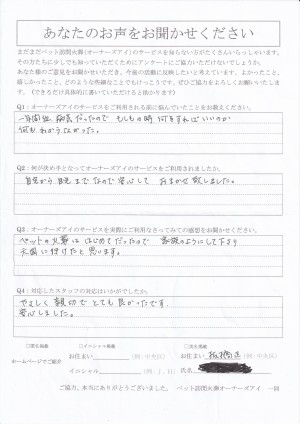 あなたのお声をお聞かせください
まだまだペット訪問火葬(オーナーズアイ)のサービスを知らない方がたくさんいらっしゃいます。
その方たちに少しでも知っていただくためにアンケートにご協力いただけないでしょうか。
あなた様のご意見をお聞かせいただき、今後の活動に反映したいと考えています。よかったこと、
嬉しかったこと、どのような些細なことでもけっこうです。ぜひご協力をよろしくお願いいたします。
(できるだけ具体的に書いていただけると助かります)
Q1：オーナーズアイのサービスをご利用される前に悩んでいたことをお教えください。
もしもの時 何をすればいいのか
何もわからなかった。
Q2：何が決め手となってオーナーズアイのサービスをご利用されましたか。
自宅から自宅までなので安心して おまかせ致しました。
Q3：オーナーズアイのサービスを実際にご利用なさってみての感想をお聞かせください。
ペットの火葬は はじめてだったので 家族のようにして下さり
天国に行けたと思います。
Q4：対応したスタッフの対応はいかがでしたか。
やさしく 親切で とても良かったです。
安心しました。
□匿名掲載 □イニシャル掲載 □実名掲載
ホームページでご紹介
お住まい (例：中央区) お住まい 板橋区 (例：中央区)
イニシャル (例：J.H) 氏名
ご協力、本当にありがとうございました。 ペット訪問火葬オーナーズアイ 一同